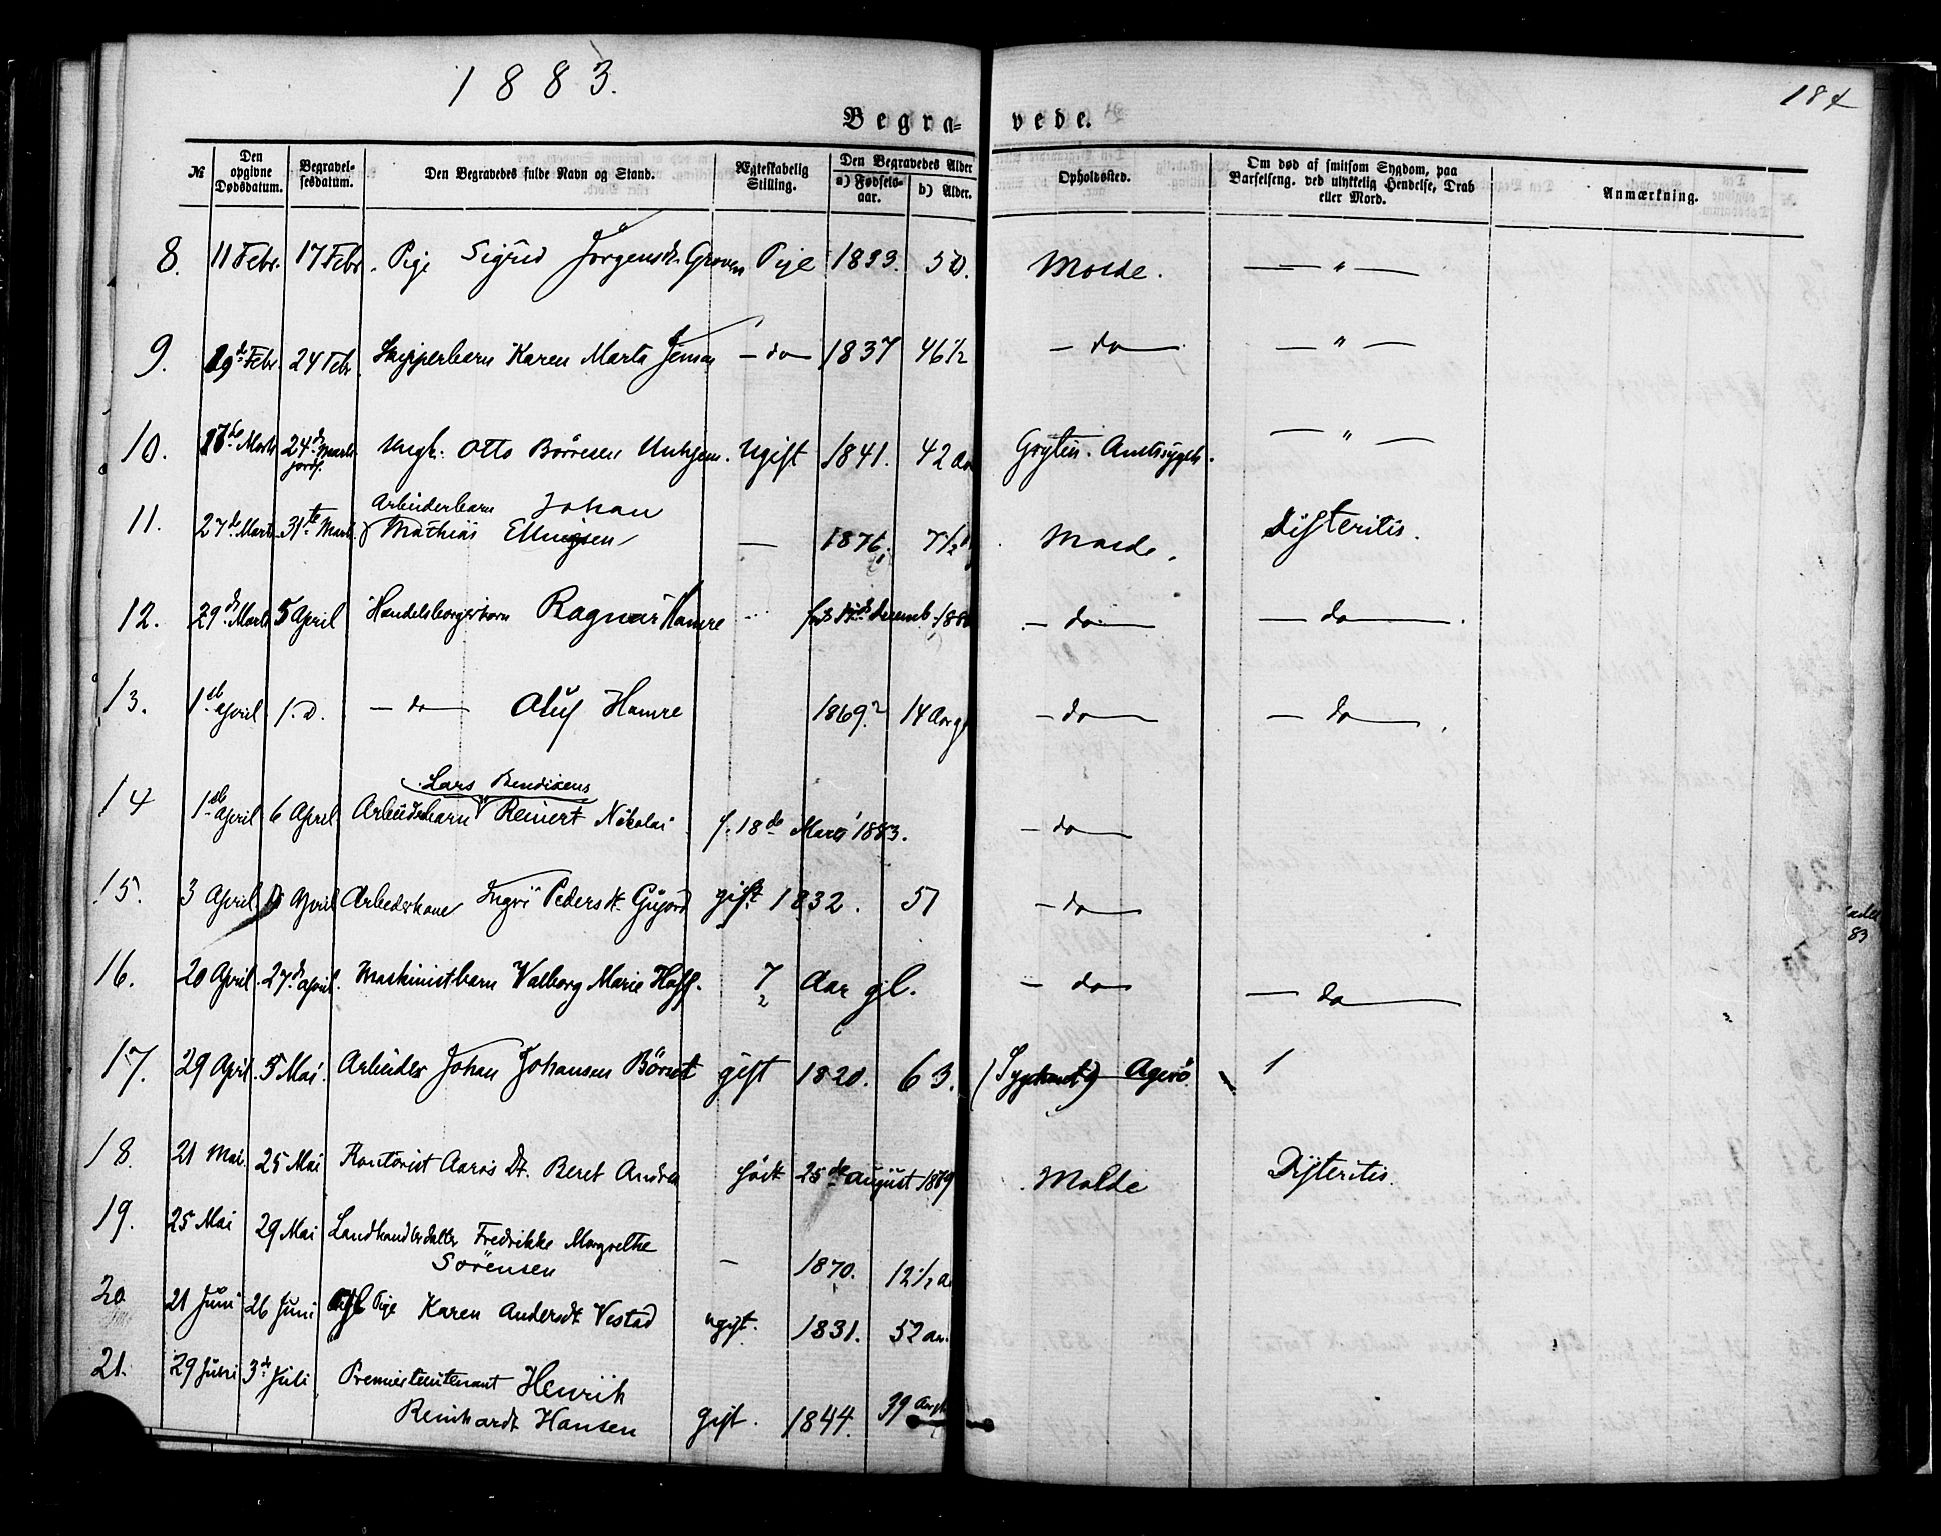 1883.
184
Begra= vede.
№ Den opgivne Dødsdatum. Begravel-sesdatum. Den Begravedes fulde Navn og Stand. Ægteskabelig Stilling. Den Begravedes Alder a) Fødsels-aar. b) Alder. Opholdssted. Om død af smitsom Sygdom, paa Barselseng, ved ulykkelig Hendelse, Drab eller Mord. Anmærkning.
8. 11 Febr. 17 Febr. Pige Sigrid Jørgensdt. Groven Pige 1833. 50. Molde. — " —
9. 19de Febr. 24 Febr. Skipperbarn Karen Marta Jensen — do — 1837 46 1/2 — do — — " —
10. 17de Marts 24de Marts jordf. Ungk. Otto Börresen Ugift 1841. 42 Aar — " —
11. 27de Marts 31te Marts Arbeiderbarn Johan
Mathias Ellingsen — 1876. 7 1/2 Molde. Difteritis.
12. 29de Marts 5 April Handelsborgerbarn Ragnar Hamre — do — — do —
13. 1ste April 1. D. — do — Oluf Hamre 1869? 14 Aar gl — do — — do —
Lars Bendixens
14 1ste April 6 April Arbeiderbarn Reinert Nikolai f. 18de Marts 1883. — do —
15. 3 April April Arbederkone Peders dt. gift 1832. 51 — do —
16. 20 April 27de April. Maskinistbarn Valborg Marie Hoff. 7 Aar gl. — do — — do —
17. 29 April 5 Mai. Arbeider Johan Johansen gift 1820. 63.
18. 21 Mai. 25 Mai Kontorist Aarøs Dt. Beret Andrea født 25de August 1869 Molde Difteritis.
19. 25 Mai 29 Mai Landhandlerdatter Fredrikke Margrethe
Sörensen — 1870. 12 1/2 a
20 21 Juni 26 Juni Pige Karen Andersdt. Vestad ugift. 1831. 52 aar.
21. 29 Juni 3de Juli Premierlieutenant Henrik
Reinhardt Hansen gift. 1844. 39